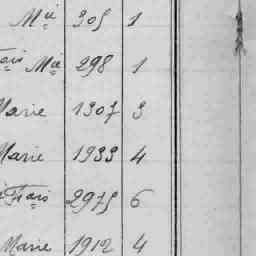 Mie 305 1
çois Mie 298 1
Marie 1307 3
Marie 1933 4
Frçois 2975 6
Marie 1912 4